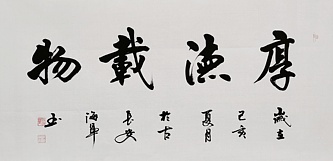 厚德載物
歲在
己亥
夏月
於古
長安
海軍
书